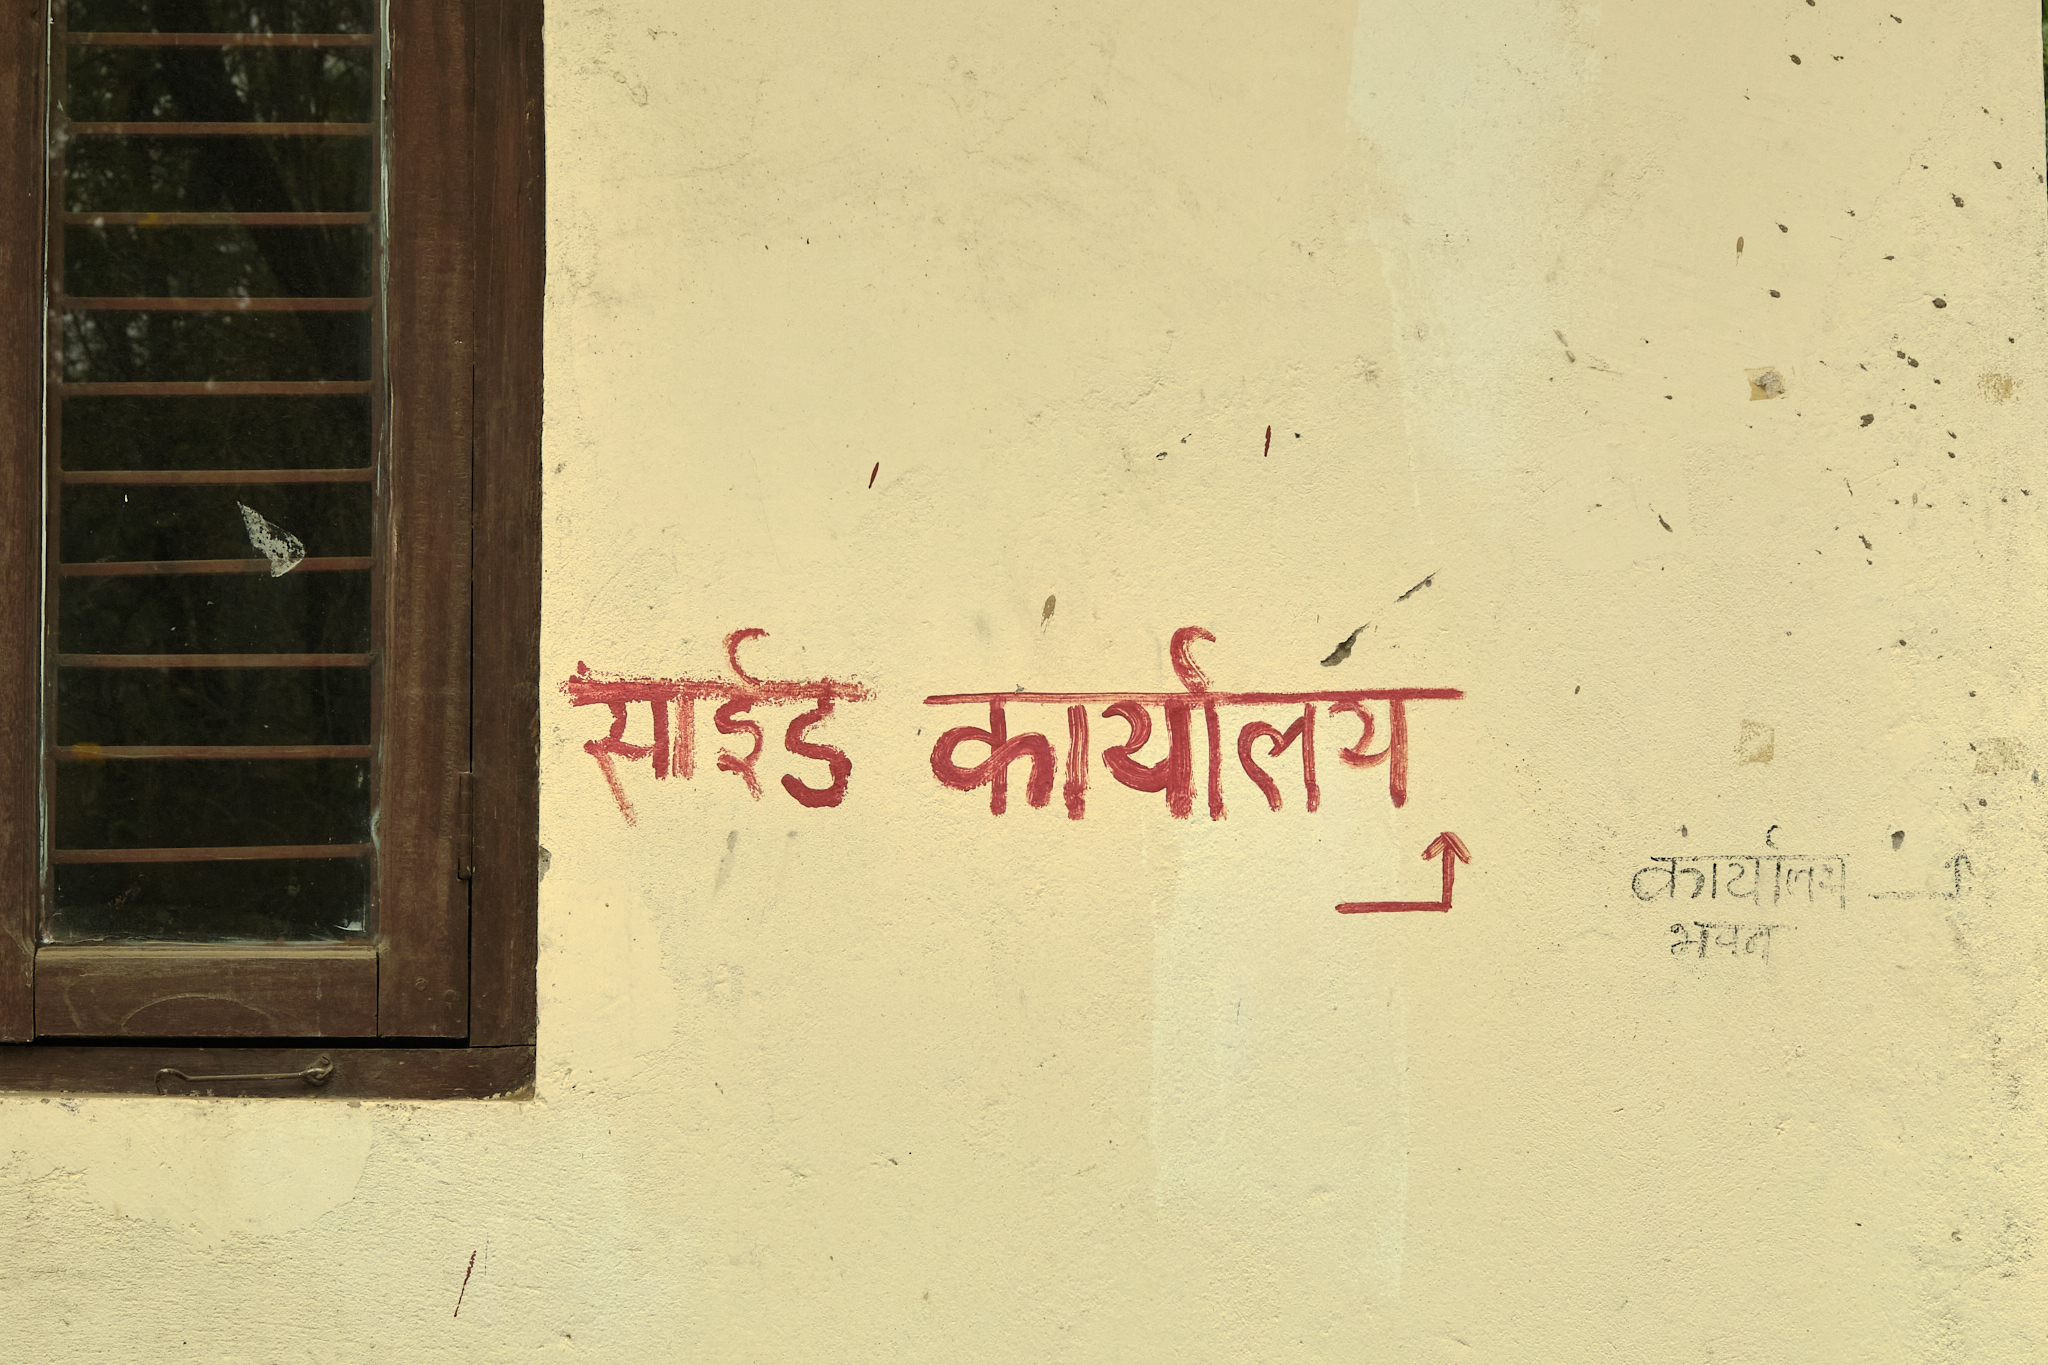 साईड कार्यालय
कार्यालय
भवन